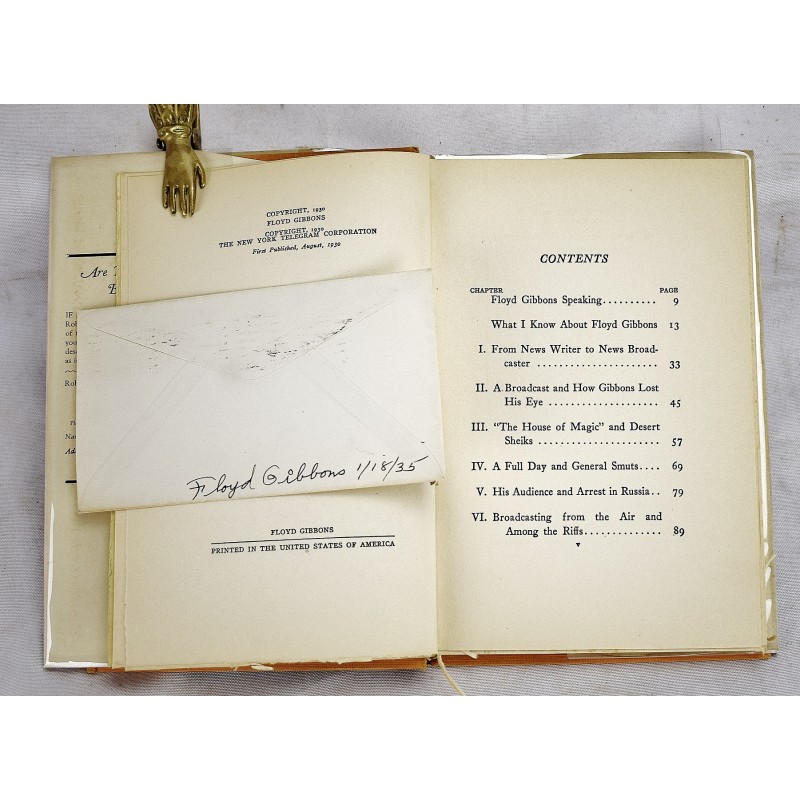 Are
IF
Rob
of
your
des
as i
Rob
Nam
Add
COPYRIGHT, 1930
FLOYD GIBBONS
COPYRIGHT, 1930
THE NEW YORK TELEGRAM CORPORATION
First Published, August, 1930
Floyd Gibbons 1/18/35
FLOYD GIBBONS
PRINTED IN THE UNITED STATES OF AMERICA
CONTENTS
CHAPTER PAGE
Floyd Gibbons Speaking.......... 9
What I Know About Floyd Gibbons 13
I. From News Writer to News Broad-
caster ...................... 33
II. A Broadcast and How Gibbons Lost
His Eye .................... 45
III. "The House of Magic" and Desert
Sheiks ...................... 57
IV. A Full Day and General Smuts.... 69
V. His Audience and Arrest in Russia.. 79
VI. Broadcasting from the Air and
Among the Riffs.............. 89